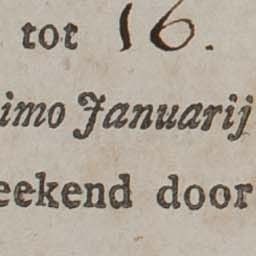 tot 16.
imo Januarij
eekend door